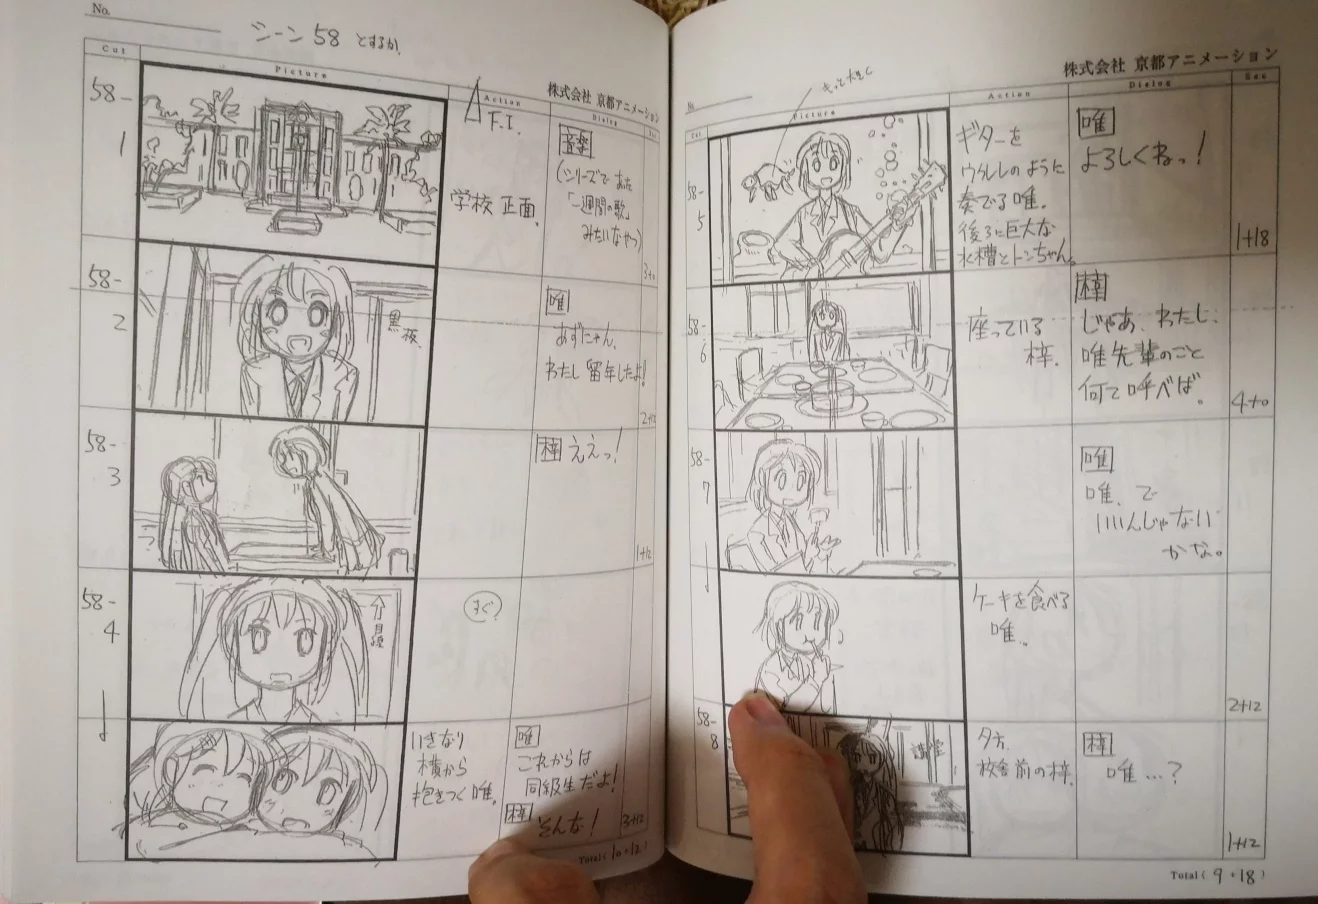 No.
シーン58 とするか。
Cut
Picture
Action
株式会社 京都アニメーション
58-
1
F.I.
学校 正面。
音楽
(シリーズであった
「一週間の歌」
みたいなやつ)
3+0
58-
2
黒板
唯
あずにゃん、
わたし留年したよ!
2+12
58-
3
梓 ええっ!
1+12
58-
4
すぐ
いきなり
横から
抱きつく唯。
唯
これからは
同級生だよ!
梓 そんな!
3+12
Total( 10+12 )
もっと大きく
株式会社 京都アニメーション
No.
Cut
Picture
Action
Dialog
Sec
58-
5
ギターを
ウクレレのように
奏でる唯。
後ろに巨大な
水槽とトンちゃん。
唯
よろしくねっ!
1+18
58-
6
座っている
梓。
梓
じゃあ、わたし、
唯先輩のこと
何て呼べば。
4+0
58-
7
唯
唯、で
いいんじゃない
かな。
ケーキを食べる
唯。
2+12
58-
8
講堂
夕方
校舎前の梓。
梓
唯…?
1+12
Total( 9+18 )